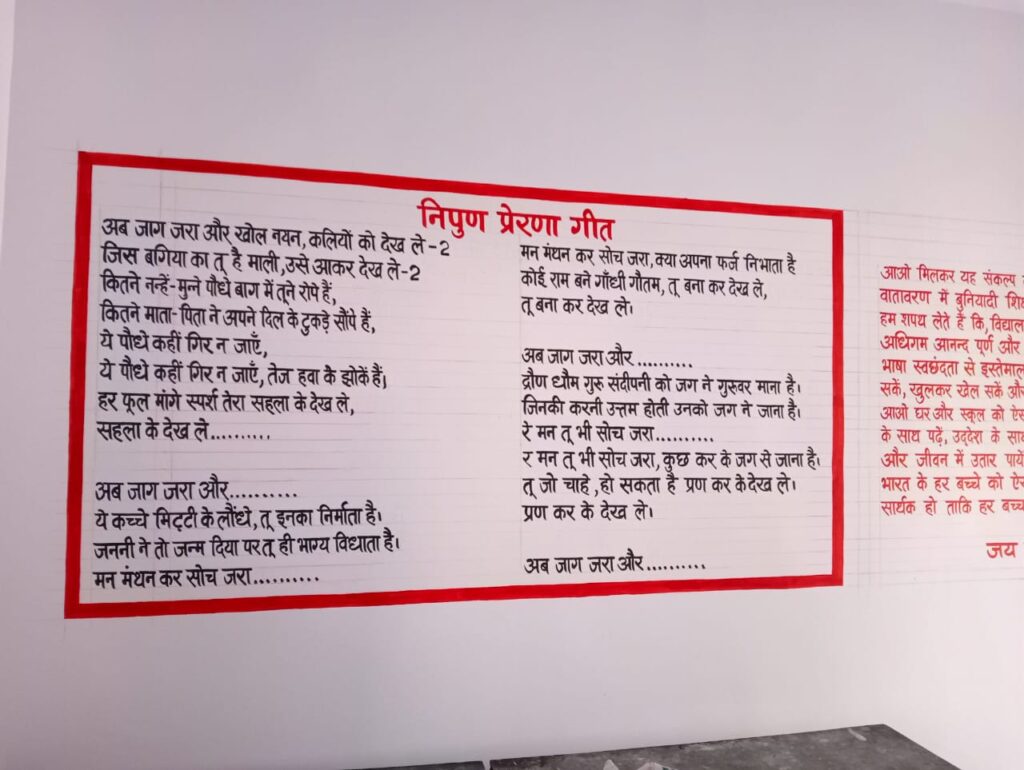 निपुण प्रेरणा गीत
अब जाग जरा और खोल नयन, कलियों को देख ले -2
जिस बगिया का तू है माली, उसे आकर देख ले-2
कितने नन्हें-मुन्ने पौधे बाग में तूने रोपे हैं,
कितने माता-पिता ने अपने दिल के टुकड़े सौंपे हैं,
ये पौधे कहीं गिर न जाएँ,
ये पौधे कहीं गिर न जाएँ, तेज हवा के झोकें हैं,
हर फूल मांगे स्पर्श तेरा सहला के देख ले,
सहला के देख ले..........
अब जाग जरा और..........
ये कच्चे मिट्टी के लौंधे, तू इनका निर्माता है।
जननी ने तो जन्म दिया पर तू ही भाग्य विधाता है।
मन मंथन कर सोच जरा..........
मन मंथन कर सोच जरा, क्या अपना फर्ज निभाता है
कोई राम बने गाँधी गौतम, तू बना कर देख ले,
तू बना कर देख ले।
अब जाग जरा और..........
द्रौण धौम गुरु संदीपनी को जग ने गुरुवर माना है।
जिनकी करनी उत्तम होती उनको जग ने जाना है।
रे मन तू भी सोच जरा..........
र मन तू भी सोच जरा, कुछ कर के जग से जाना है।
तू जो चाहे, हो सकता है प्रण कर के देख ले।
प्रण कर के देख ले।
अब जाग जरा और..........
आओ मिलकर यह संकल्प
वातावरण में बुनियादी
हम शपथ लेते है कि,
अधिगम आनन्द पूर्ण और
भाषा स्वछंदता से
सकें, खुलकर खेल सकें
आओ घर और स्कूल को
के साथ पढ़ें, उद्देश के
और जीवन में उतार
भारत के हर बच्चे को
सार्थक हो ताकि हर
जय